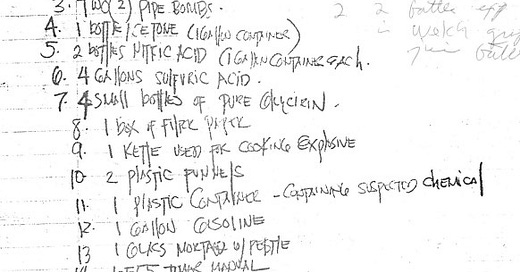 3. TWO (2) PIPE BOMBS.
4. 1 BOTTLE ACETONE (1 GALLON CONTAINER)
5. 2 BOTTLES NITRIC ACID (1 GALLON CONTAINER EACH.
6. 4 GALLONS SULFURIC ACID.
7. 4 SMALL BOTTLES OF PURE GLYCIRIN.
8. 1 BOX OF FILTER PAPER
9. 1 KETTLE USED FOR COOKING EXPLOSIVE
10. 2 PLASTIC FUNNELS
11. 1 PLASTIC CONTAINER - CONTAINING SUSPECTED CHEMICAL
12. 1 GALLON GASOLINE
13 1 GLASS MORTAR W/ PESTLE
MANUAL
2 2
in